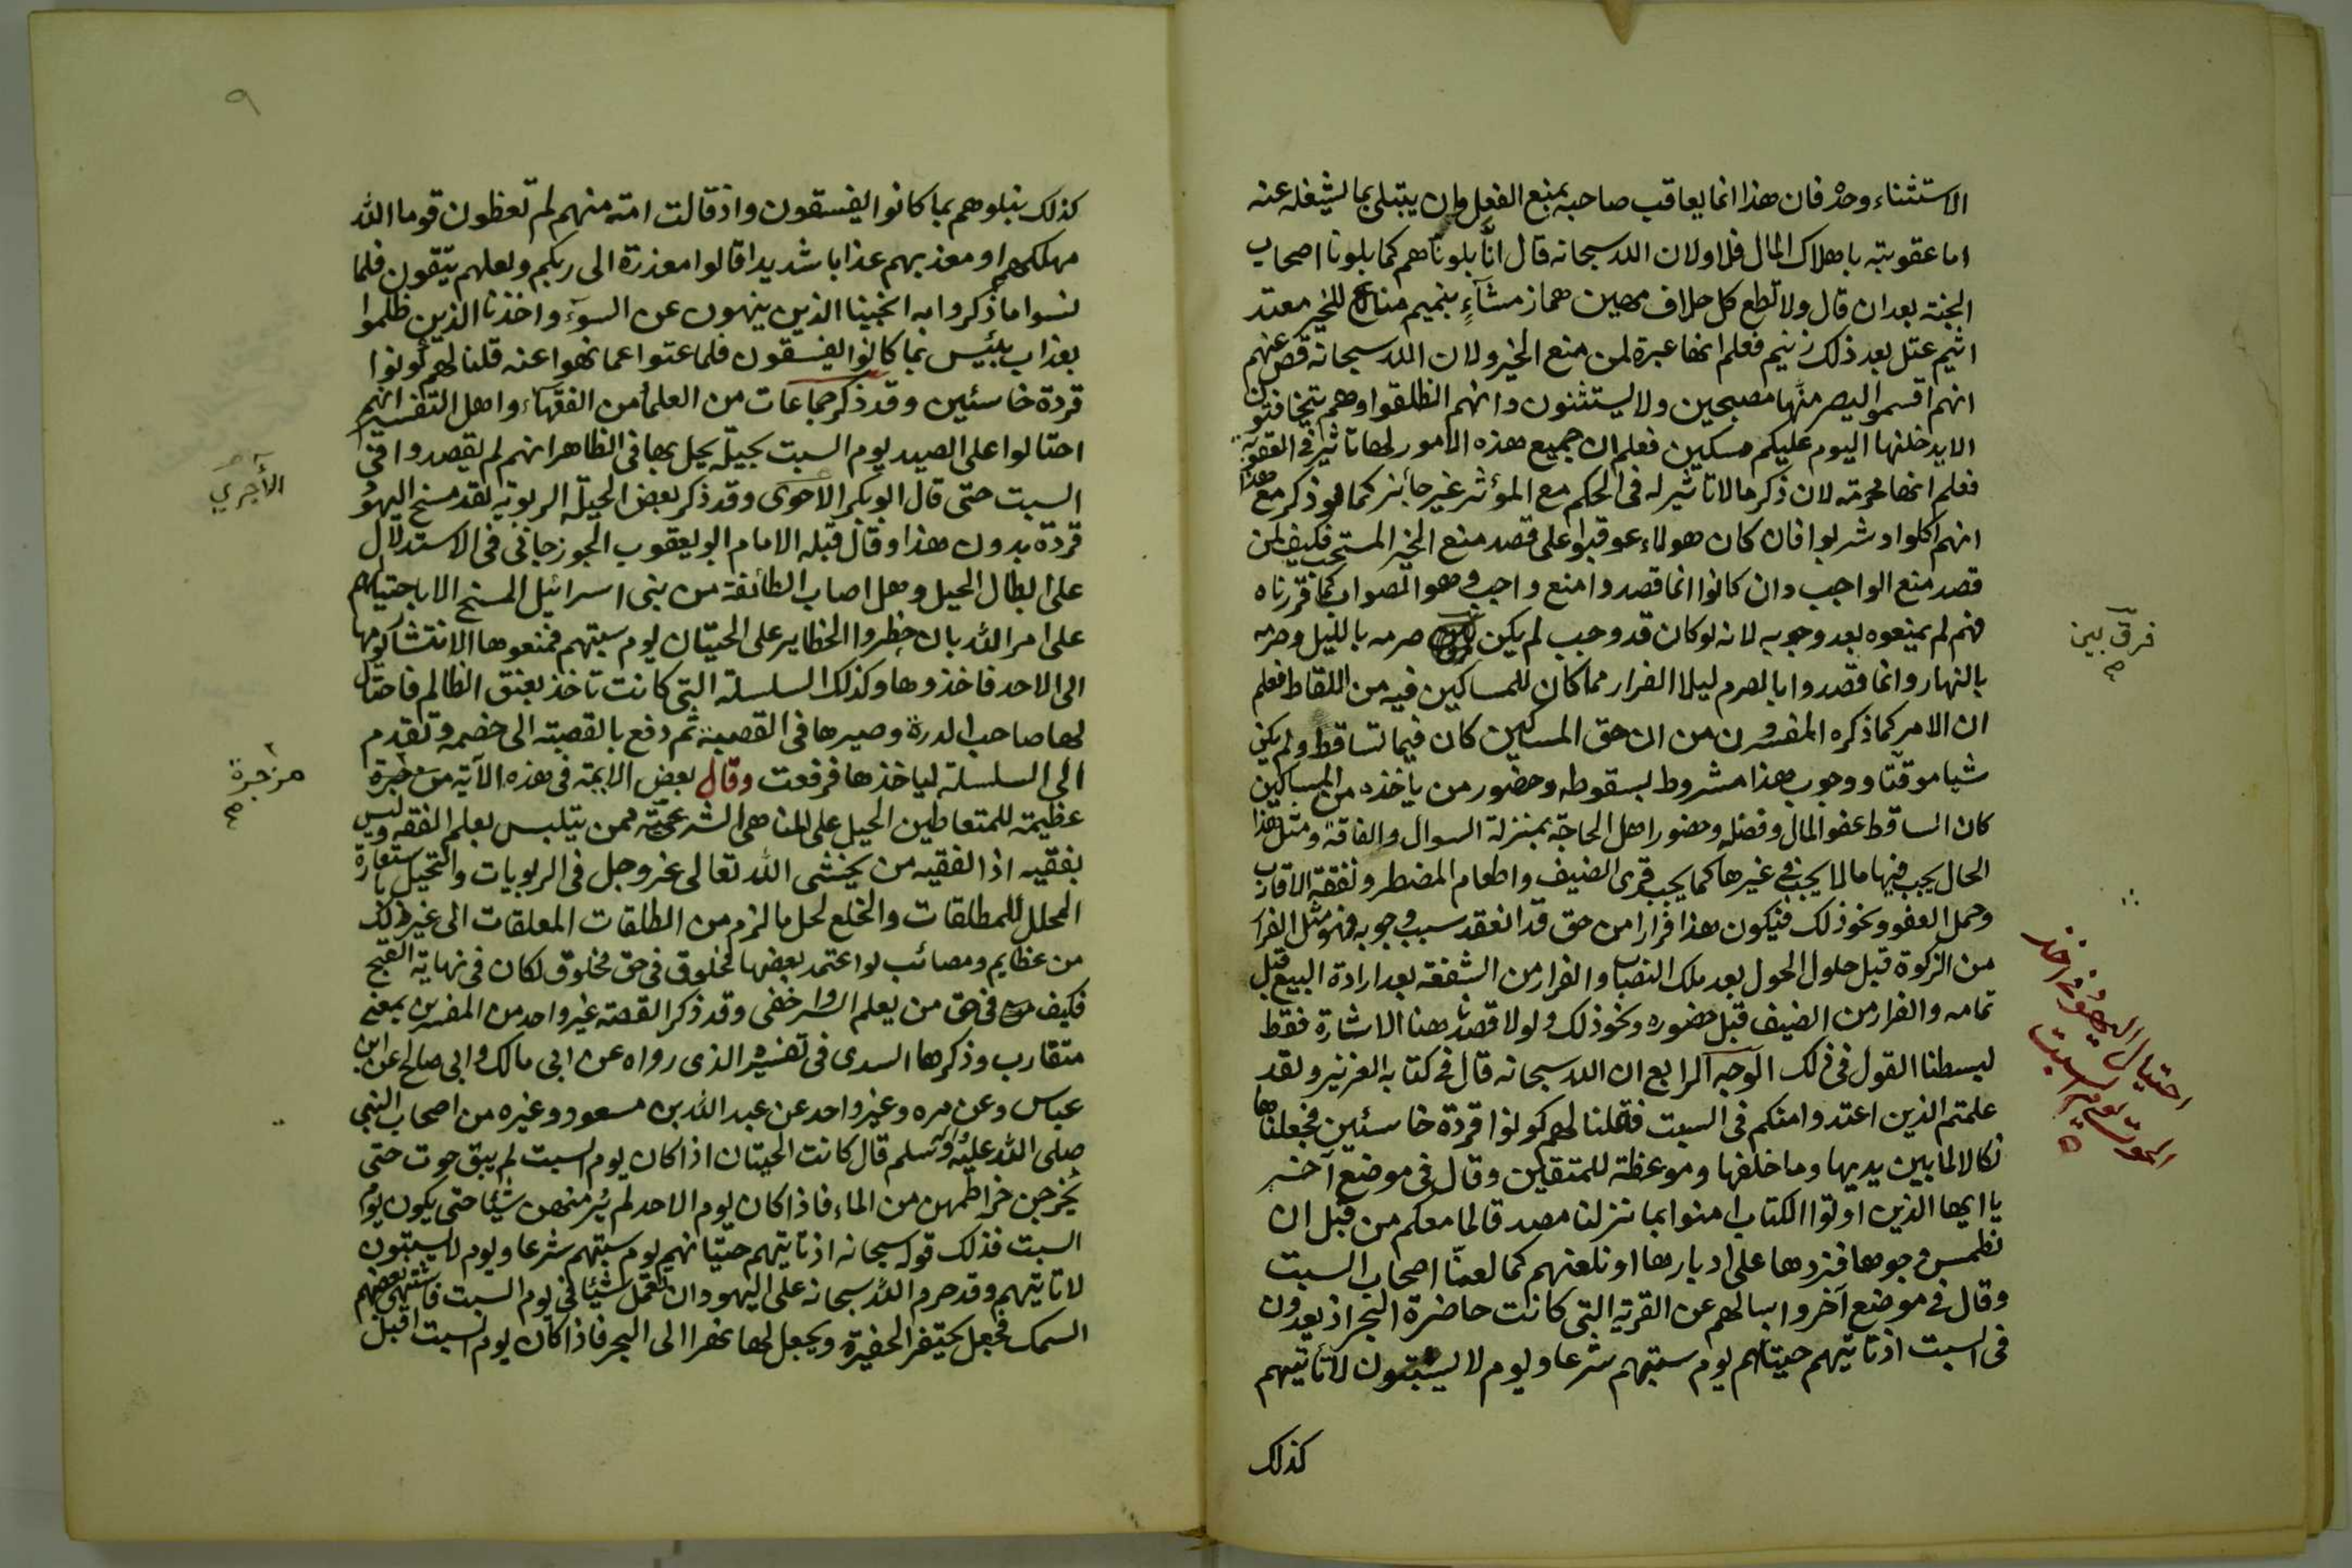 الاستثناء وحده فان هذا انما يعاقب صاحبه بمنع الفعل وان يبتلى بما يشغله عنه
اما عقوبته باهلاك المال فلا ولان الله سبحانه قال انا بلوناهم كما بلونا اصحاب
الجنة بعد ان قال ولا تطع كل حلاف مهين هماز مشآءٍ بنميم مناع للخير معتد
اثيم عتل بعد ذلك زنيم فعلم انها عبرة لمن منع الخير ولان الله سبحانه قص عنهم
انهم اقسموا ليصرمنها مصبحين ولا يستثنون وانهم انطلقوا وهم يتخافتون
الا يدخلنها اليوم عليكم مسكين فعلم ان جميع هذه الامور لها تاثير في العقوبة
فعلم انها محرمة لان ذكر ما لا تاثير له في الحكم مع المؤثر غير جائز كما لو ذكر مع هذا
انهم اكلوا وشربوا فان كان هولاء عوقبوا على قصد منع الخير المستحب فكيف لمن
قصد منع الواجب وان كانوا انما قصدوا منع واجب وهو الصواب كما قررناه
فهم لم يمنعوه بعد وجوبه لانه لو كان قد وجب لم يكن صرمه بالليل وصرمه
بالنهار وانما قصدوا بالصرم ليلا الفرار مما كان للمساكين فيه من اللقاط فعلم
ان الامر كما ذكره المفسرون من ان حق المساكين كان فيما تساقط ولم يكن
شيا موقتا ووجوب هذا مشروط بسقوطه وحضور من ياخذه من المساكين
كان الساقط عفو المال وفضله وحضور اهل الحاجة بمنزلة السوال والفاقة ومثل هذا
الحال يجب فيها ما لا يجب في غيرها كما يجب قرى الضيف واطعام المضطر ونفقة الاقارب
وحمل العفو ونحو ذلك فيكون هذا فرارا من حق قد انعقد سبب وجوبه فهو مثل الفرار
من الزكوة قبل حلول الحول بعد ملك النصاب والفرار من الشفعة بعد ارادة البيع قبل
تمامه والفرار من الضيف قبل حضوره ونحو ذلك ولولا قصدنا هنا الاشارة فقط
لبسطنا القول في ذلك الوجه الرابع ان الله سبحانه قال في كتابه العزيز ولقد
علمتم الذين اعتدوا منكم في السبت فقلنا لهم كونوا قردة خاسئين فجعلناها
نكالا لما بين يديها وما خلفها وموعظة للمتقين وقال في موضع آخر
يا ايها الذين اوتوا الكتاب امنوا بما نزلنا مصدقا لما معكم من قبل ان
نطمس وجوها فنردها على ادبارها او نلعنهم كما لعنا اصحاب السبت
وقال في موضع آخر واسالهم عن القرية التي كانت حاضرة البحر اذ يعدون
في السبت اذ تاتيهم حيتانهم يوم سبتهم شرعا ويوم لا يسبتون لا تاتيهم
كذلك
فرق بين
احتيال اليهود في اخذ
الحوت يوم السبت
٩
كذلك نبلوهم بما كانوا يفسقون واذ قالت امة منهم لم تعظون قوما الله
مهلكهم او معذبهم عذابا شديدا قالوا معذرة الى ربكم ولعلهم يتقون فلما
نسوا ما ذكروا به انجينا الذين ينهون عن السوٓء واخذنا الذين ظلموا
بعذاب بئيس بما كانوا يفسقون فلما عتوا عما نهوا عنه قلنا لهم كونوا
قردة خاسئين وقد ذكر جماعات من العلماء من الفقهاء واهل التفسير انهم
احتالوا على الصيد يوم السبت بحيلة يحل بها في الظاهر انهم لم يقصدوا في
السبت حتى قال ابو بكر الاحوى وقد ذكر بعض الحيلة الربوية لقد مسخ اليهود
قردة بدون هذا وقال قبله الامام ابو يعقوب الجوزجاني في الاستدلال
على ابطال الحيل وهل اصاب الطائفة من بني اسرائيل المسخ الا باحتيالهم
على امر الله بان حظروا الحظاير على الحيتان يوم سبتهم فمنعوها الانتشار يومها
الى الاحد فاخذوها وكذلك السلسلة التي كانت تاخذ بعنق الظالم فاحتال
لها صاحب الدرة وصيرها في القصبة ثم دفع بالقصبة الى خصمه وتقدم
الى السلسلة لياخذها فرفعت وقال بعض الايمة في هذه الآية
عظيمة للمتعاطين الحيل على المناهي الشرعية ممن يتلبس بعلم الفقه وليس
بفقيه اذ الفقيه من يخشى الله تعالى عز وجل في الربويات والتحيل باستعارة
المحلل للمطلقات والخلع لحل ما لزم من الطلقات المعلقات الى غير ذلك
من عظايم ومصائب لو اعتمد بعضها مخلوق في حق مخلوق لكان في نهاية القبح
فكيف في حق من يعلم السر واخفى وقد ذكر القصة غير واحد من المفسرين بمعنى
متقارب وذكرها السدي في تفسيره الذي رواه عن ابي مالك وابي صالح عن ابن
عباس وعن مره وغير واحد عن عبد الله بن مسعود وغيره من اصحاب النبي
صلى الله عليه وسلم قال كانت الحيتان اذا كان يوم السبت لم يبق حوت حتى
يخرجن خراطمهن من الماء فاذا كان يوم الاحد لم يُر منهن شيئا حتى يكون يوم
السبت فذلك قوله سبحانه اذ تاتيهم حيتانهم يوم سبتهم شرعا ويوم لا يسبتون
لا تاتيهم وقد حرم الله سبحانه على اليهود ان تعمل شيئا في يوم السبت فاشتهى بعضهم
السمك فجعل يحتفر الحفيرة ويجعل لها نهرا الى البحر فاذا كان يوم السبت اقبل
الأجري
مزجرة